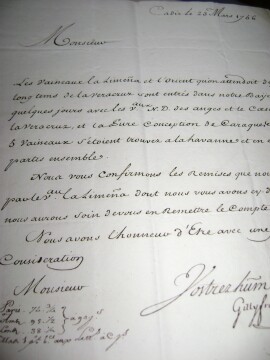 Cadix Le 22 Mars 1766
Monsieur
Les Vaisseaux la Limeña et l'orient qu'on attendoit de
longtems de la Veracruz sont entrés dans notre Baye
quelques jours avec les Vaux N.D. des anges et le
la Veracruz, et la Pure Conception de Caraque
5 Vaisseaux s'étoient trouvez a la havanne et en
partis ensemble.
Nous vous Confirmons les Remises que nous
par le Vau La Limeña dont nous vous avons
nous aurons soin de vous en Remettre le Compte
Nous avons l'honneur d'Etre avec une
Consideration
Monsieur
Vos tres hum
Gilly fr
Paris 74 3/4